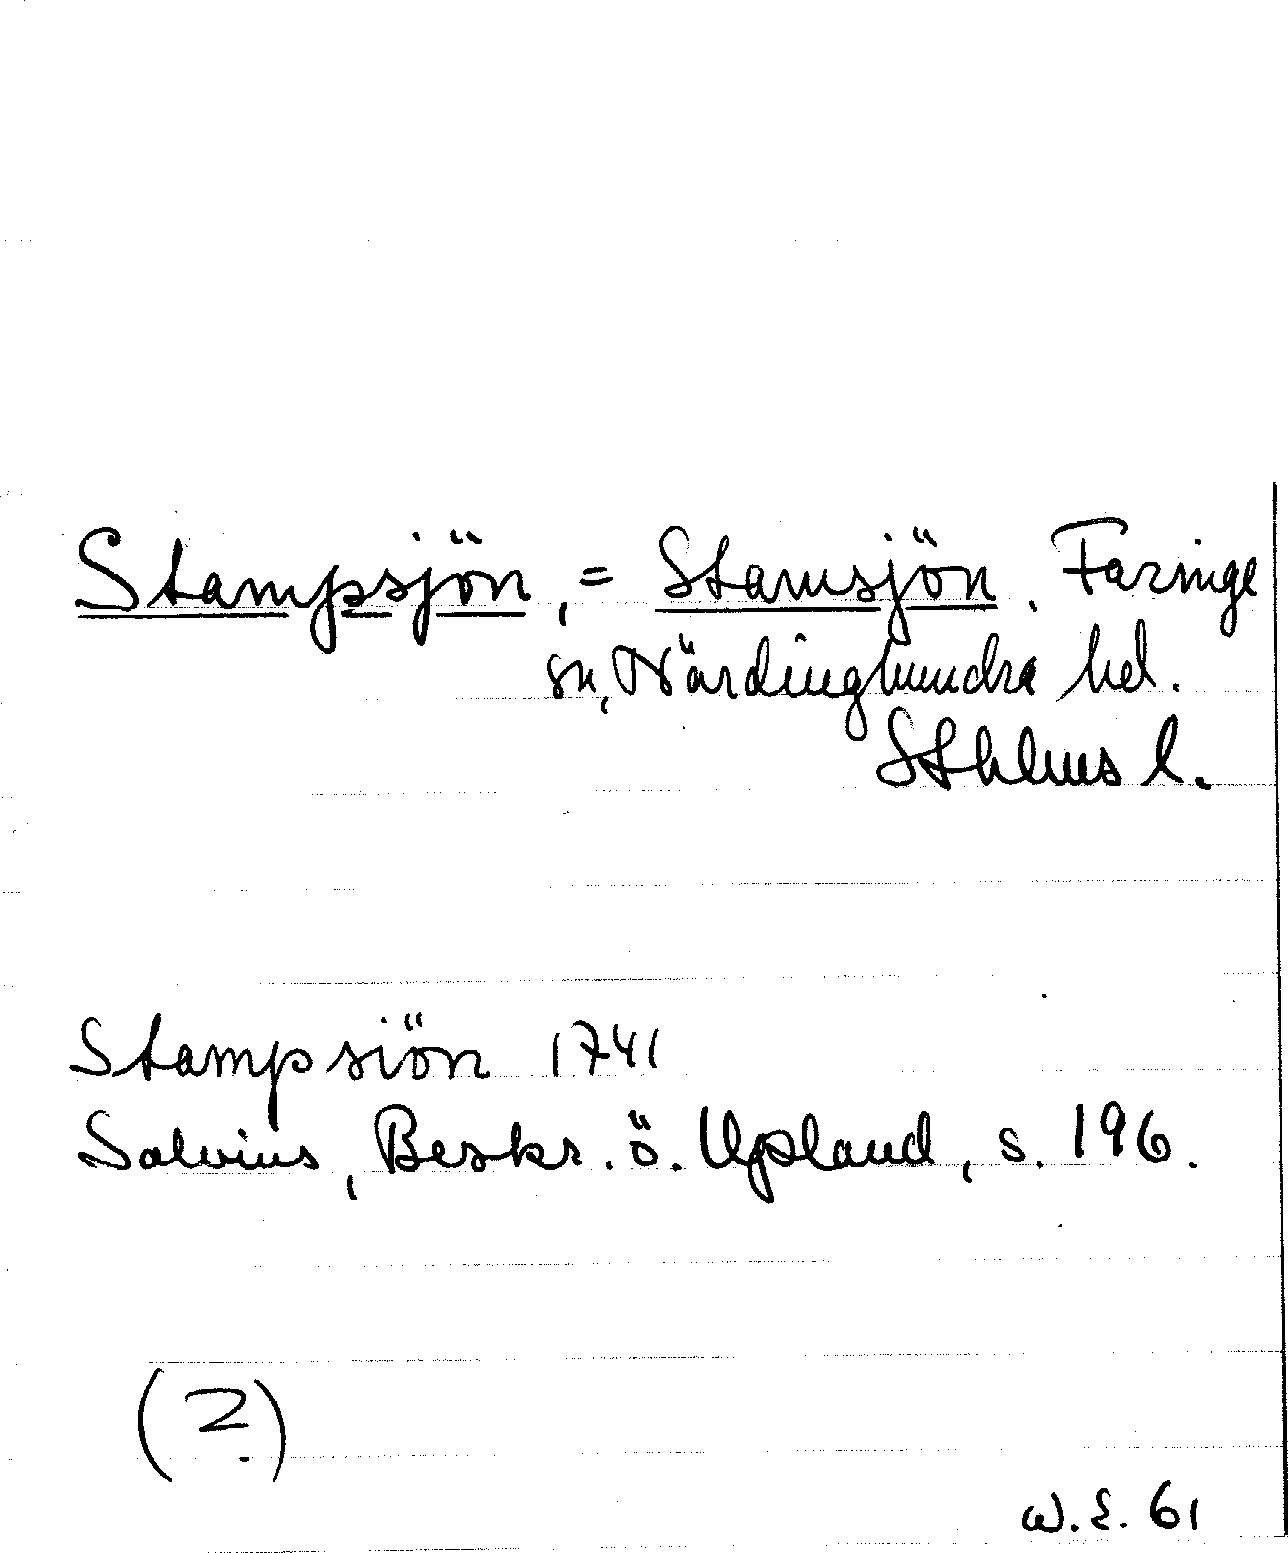 Stampsjön, = Stamsjön, Faringe
sn, Närdinghundra hd.
Sthlms l.
Stampsiön 1741
Salvius, Beskr. ö. Upland, s. 196.
(2)
W.E. 61